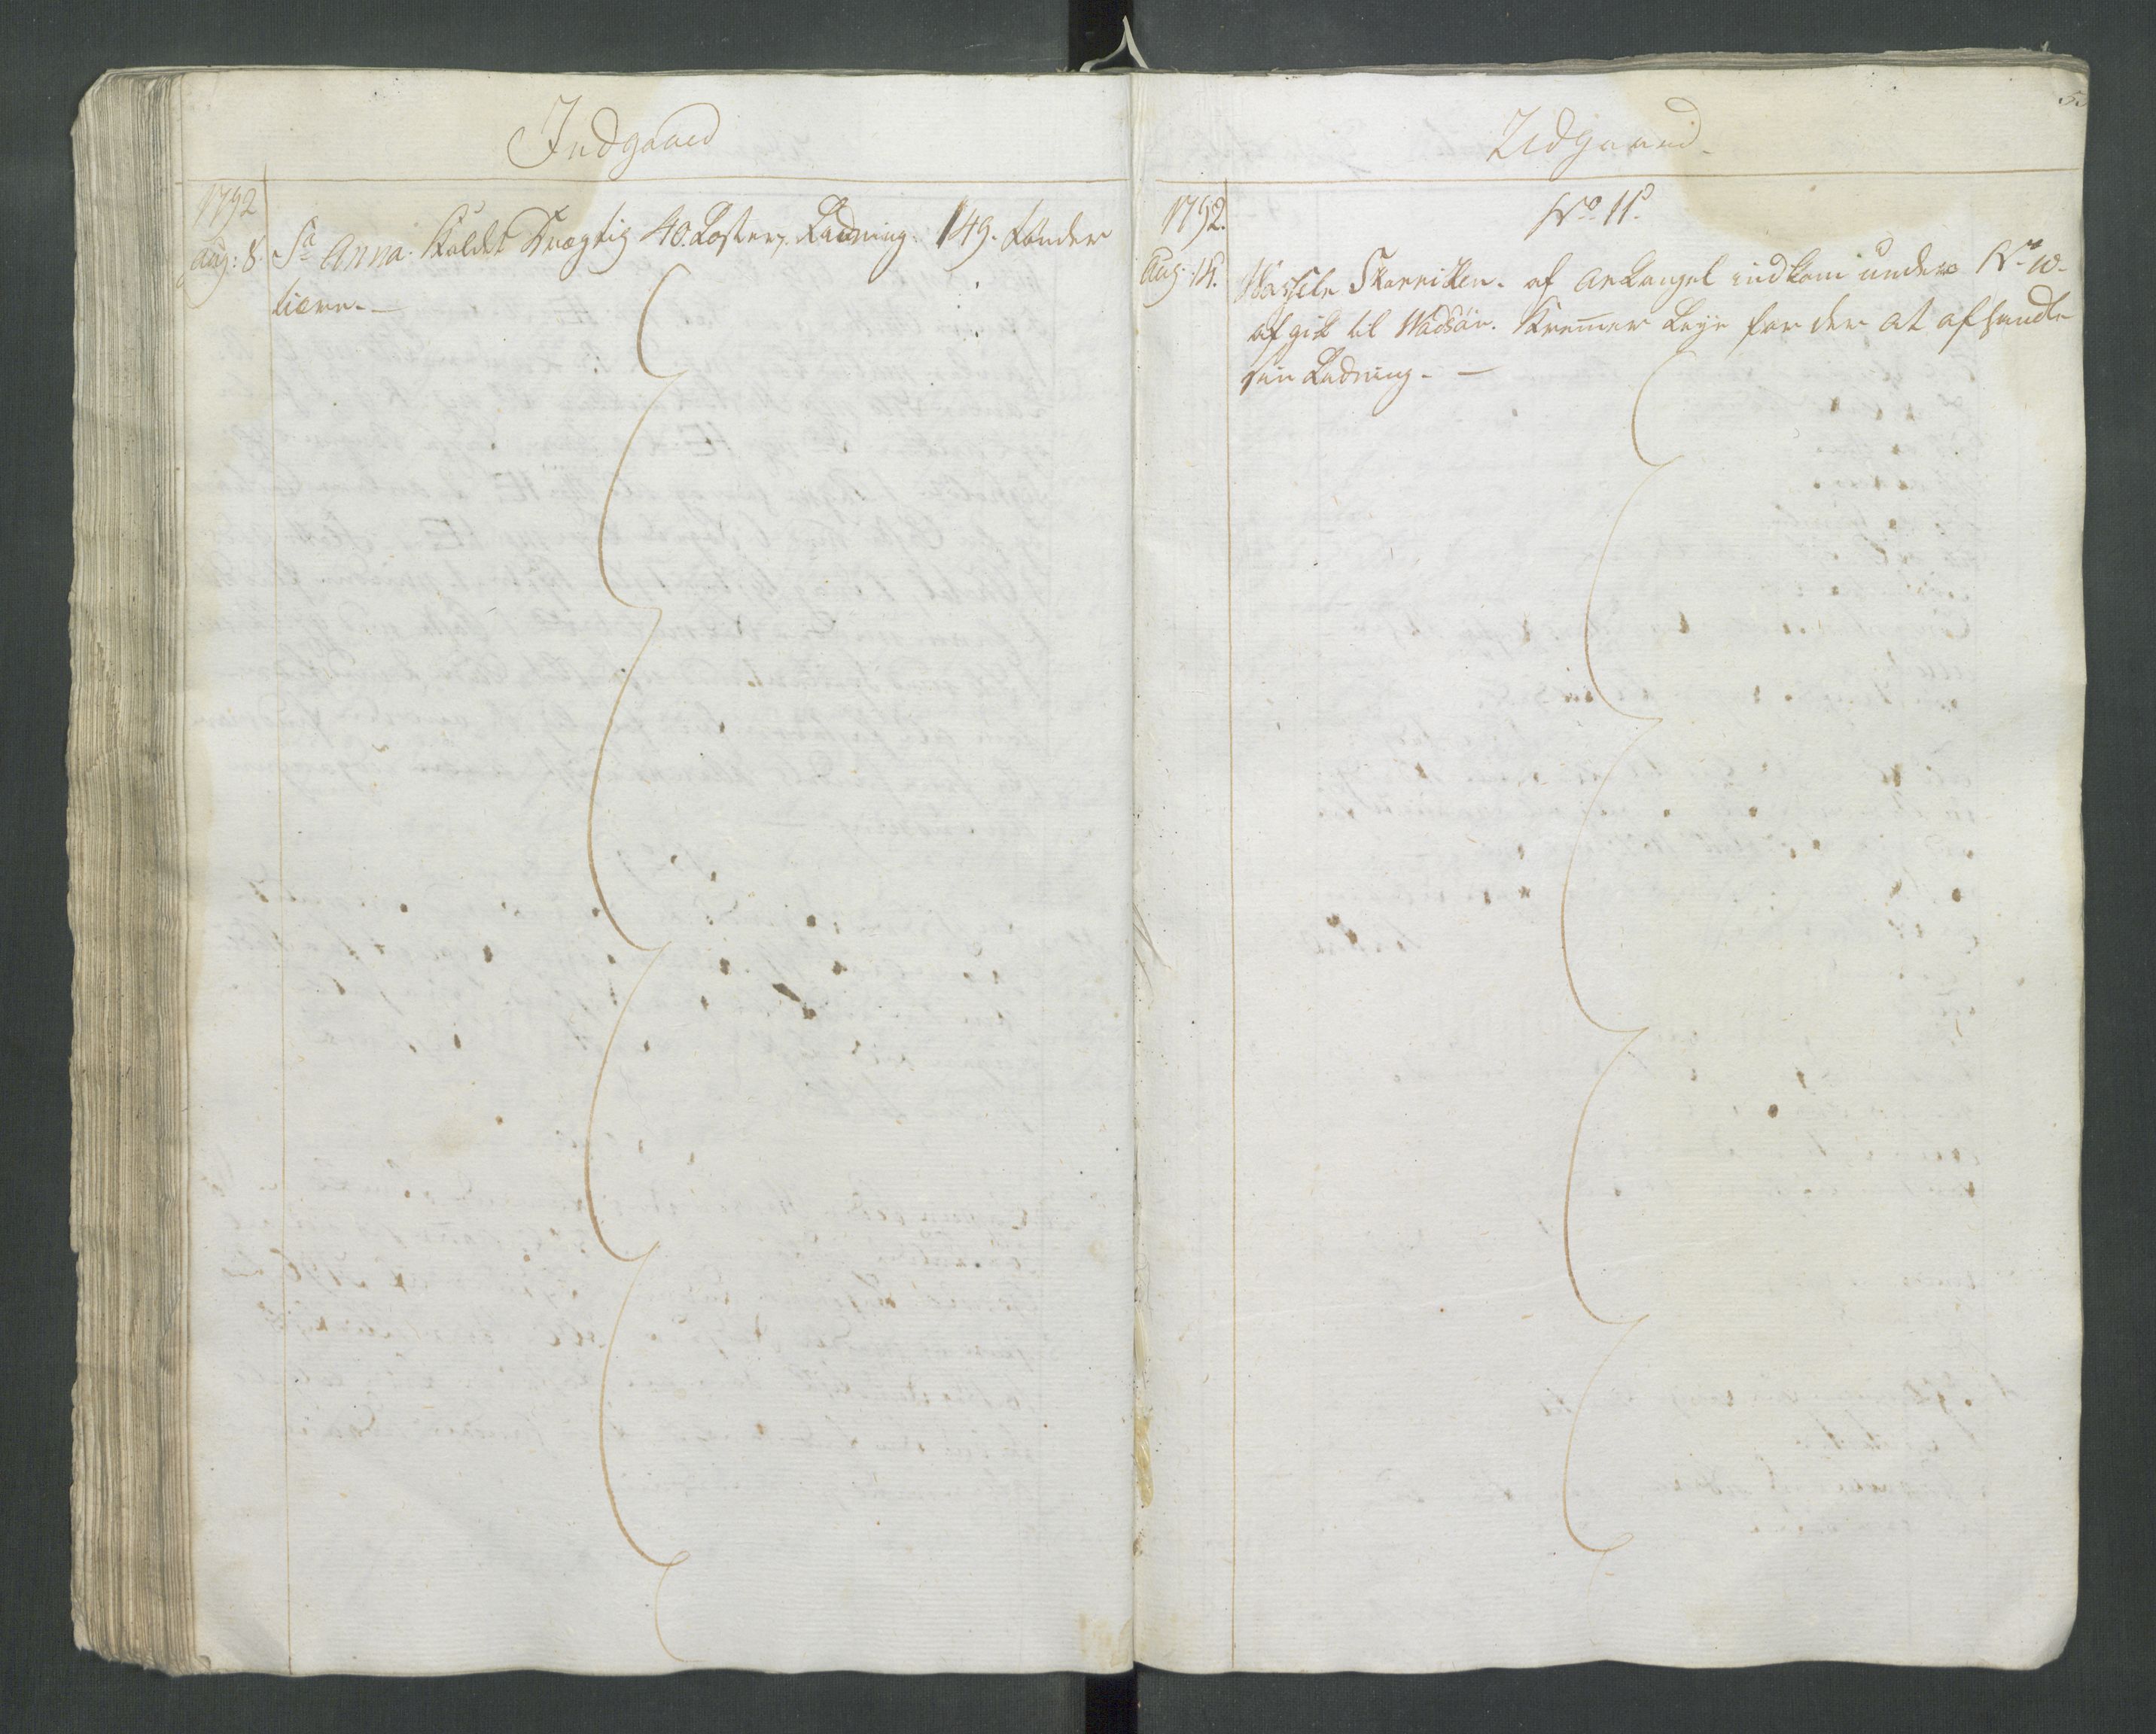 Indgaaed
1792
Aug: 8. St Anna. Kaldet Drægtig 40. Læster, Ladning. 149. Tønder
tiære. —
Udgaaed.
1792.
No 11.
Aug: 14. Wassele Skarnitzen. af Arkangel indkom under No 10.
afgik til Wadsöe. Kremmer Leye for der at afhandle
sin Ladning. —